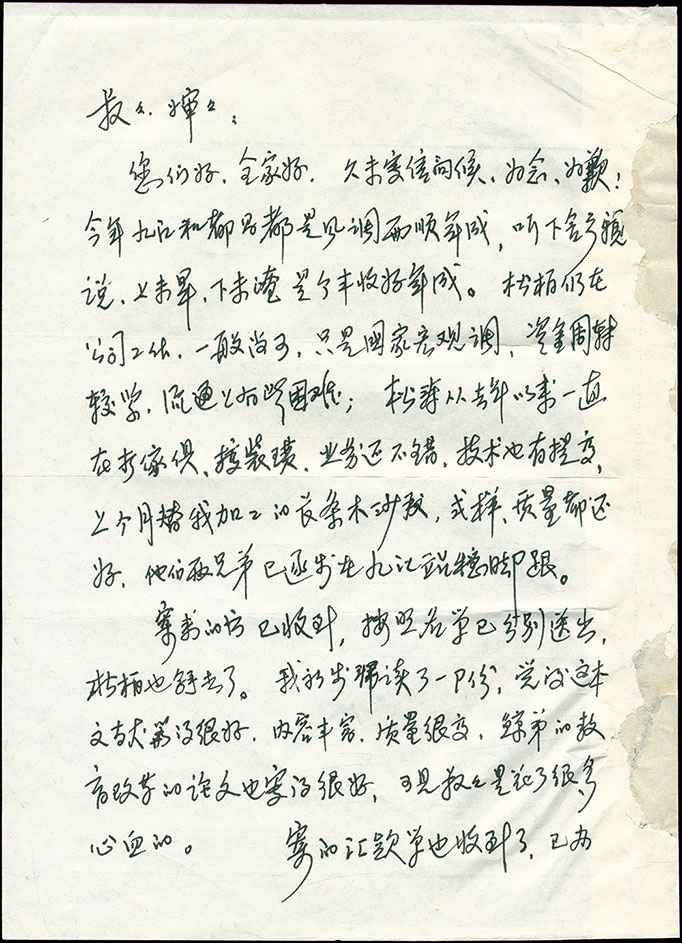 叔々、婶々：
您们好，全家好，久未写信问候，为念、为歉！
今年九江和都昌都是风调雨顺年成，听下舍乡亲
说，上未旱，下未淹是个丰收好年成。松柏仍在
公司工作，一般尚可，只是国家宏观调，资金周转
较紧，流通上有些困难；松 从去年以来一直
在打家俱、接装璜，业务还不错，技术也有提高，
上个月替我加工的长条木沙发，式样、质量都还
好，他们两兄弟已逐步在九江站稳脚跟。
寄来的书已收到，按照名单已分别送出，
松柏也拿去了。我初步拜读了一部份，觉得这本
文献写得很好，内容丰富，质量很高， 弟的教
育改革的论文也写得很好，可见叔々是花了很多
心血的。 寄的汇款单也收到了，已办